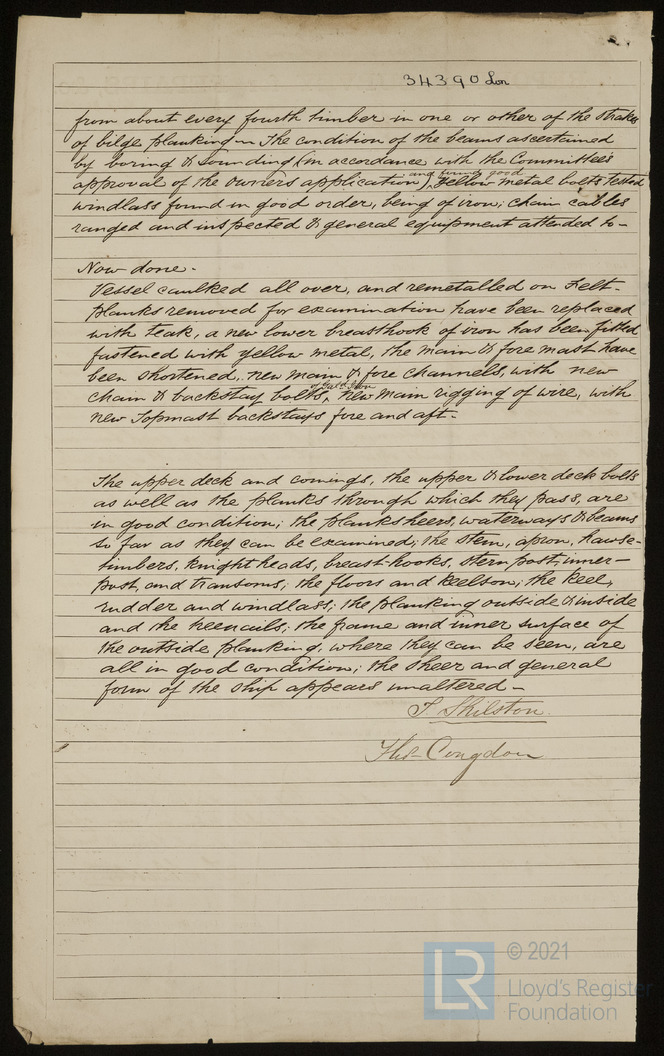 34390 Lon
from about every fourth timber in one or other of the strakes
of bilge planking – The condition of the beams ascertained
by boring & sounding (in accordance with the Committee's
and found good
approval of the owners application), yellow metal bolts tested
windlass found in good order, being of iron; chain cables
ranged and inspected & general equipment attended to –
Now done –
Vessel caulked all over, and remetalled on Felt –
planks removed for examination have been replaced
with teak, a new lower breasthook of iron has been fitted
fastened with yellow metal, the main & fore masts have
been shortened, new main & fore channels, with new
of Galvd Iron
chain & backstay bolts, new main rigging of wire, with
new Topmast backstays fore and aft –
The upper deck and comings, the upper & lower deck bolts
as well as the planks through which they pass, are
in good condition; the planksheers, waterways & beams
so far as they can be examined; the stem, apron, hawse-
timbers, knightheads, breast-hooks, stern post, inner-
post, and transoms; the floors and keelson; the keel,
rudder and windlass; the planking outside & inside
and the treenails; the frame and inner surface of
the outside planking, where they can be seen, are
all in good condition; the sheer and general
form of the ship appears unaltered –
J Shilston
Thos Congdon
LR
© 2021
Lloyd's Register
Foundation